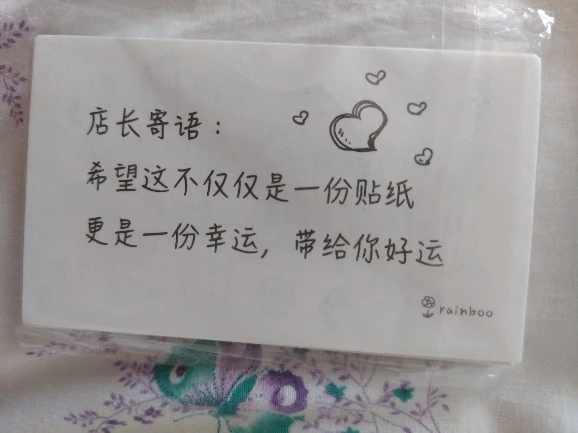 店长寄语：
希望这不仅仅是一份贴纸
更是一份幸运，带给你好运
rainboo